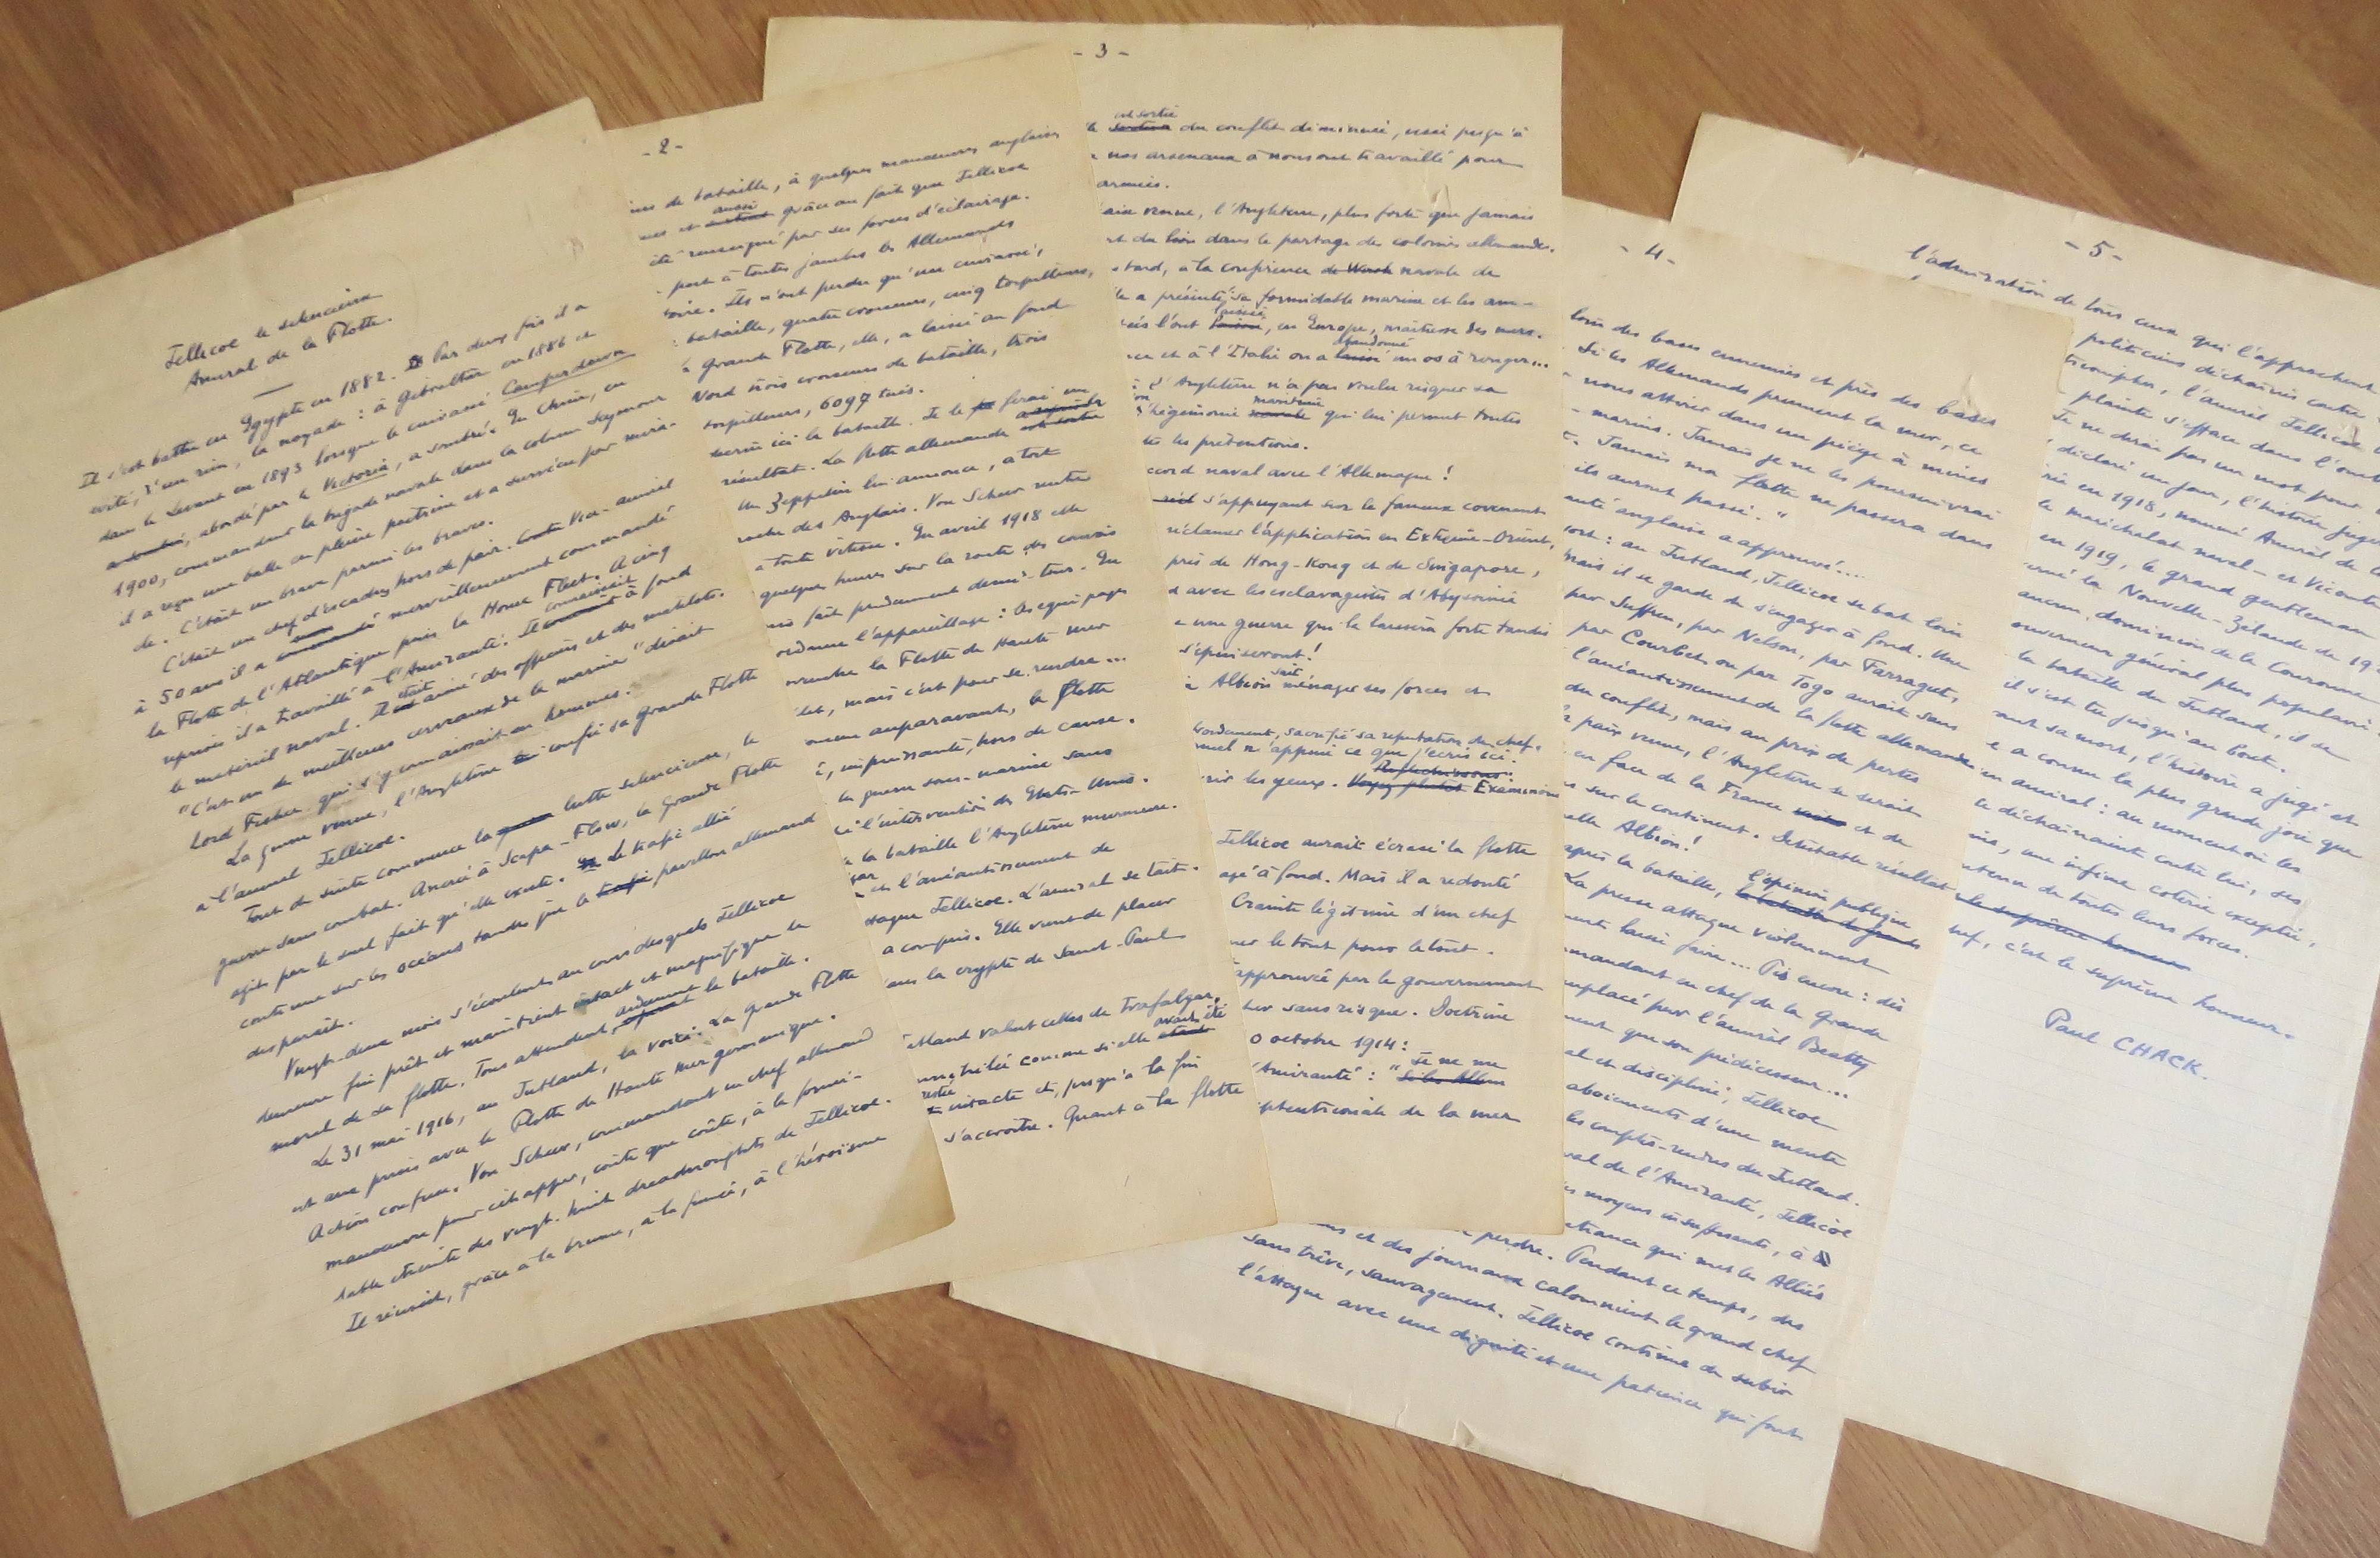 Jellicoe le silencieux
Amiral de la Flotte.
Il s'est battu en Egypte en 1882. Par deux fois il a
évité, d'un rien, la noyade : à Gibraltar en 1886 et
dans le Levant en 1893 lorsque le cuirassé Camperdown
abordé par le Victoria, a sombré. En Chine, en
1900, commandant la brigade navale dans la colonne Seymour
il a reçu une balle en pleine poitrine et a survécu par mira-
cle. C'était un brave parmi les braves.
C'était un chef d'escadres hors de pair. Vice-amiral
à 50 ans il a merveilleusement commandé
la Flotte de l'Atlantique puis la Home Fleet. A cinq
reprises il a travaillé à l'Amirauté. Il connaissait à fond
le matériel naval. Il était aimé des officiers et des matelots.
"C'est un des meilleurs cerveaux de la marine" disait
Lord Fisher qui s'y connaissait en hommes.
La guerre venue, l'Angleterre confie sa Grande Flotte
à l'amiral Jellicoe.
Tout de suite commence la lutte silencieuse, la
guerre sans combat. Ancrée à Scapa-Flow, la Grande Flotte
agit par le seul fait qu'elle existe. Le trafic allié
continue sur les océans tandis que le pavillon allemand
disparaît.
Vingt-deux mois s'écoulent au cours desquels Jellicoe
demeure fin prêt et maintient intact et magnifique le
moral de sa flotte. Tous attendent ardemment la bataille.
Le 31 mai 1916, au Jutland, la voici. La Grande Flotte
est aux prises avec la Flotte de Haute Mer germanique.
Action confuse. Von Scheer, commandant en chef allemand
manoeuvre pour échapper, coûte que coûte, à la formi-
dable étreinte des vingt-huit dreadnoughts de Jellicoe.
Il réussit, grâce à la brume, à la fumée, à l'héroïsme
- 2 -
de bataille, à quelques manoeuvres anglaises
et aussi grâce au fait que Jellicoe
été renseigné par ses forces d'éclairage.
part à toutes jambes les Allemands
Ils n'ont perdu qu'un cuirassé,
bataille, quatre croiseurs, cinq torpilleurs,
Grande Flotte, elle, a laissé au fond
Nord trois croiseurs de bataille, trois
torpilleurs, 6097 tués.
ici la bataille. Je le ferai un
résultat. La flotte allemande
Un Zeppelin lui annonce, à tort
des Anglais. Von Scheer rentre
à toute vitesse. En avril 1918 elle
quelques heures sur la route des convois
fait prudemment demi-tour. En
ordonne l'appareillage : les équipages
la Flotte de Haute Mer
mais c'est pour se rendre ...
auparavant, la flotte
impuissante, hors de cause.
la guerre sous-marine sans
l'intervention des Etats-Unis.
la bataille l'Angleterre murmure.
l'anéantissement de
Jellicoe. L'amiral se tait.
a compris. Elle vient de placer
dans la crypte de Saint-Paul
valut celles de Trafalgar,
comme si elle avait été
restée intacte et, jusqu'à la fin
s'accroître. Quant à la flotte
- 3 -
est sortie du conflit diminuée, usée jusqu'à
nos arsenaux à nous ont travaillé pour
armées.
venue, l'Angleterre, plus forte que jamais
du lion dans le partage des colonies allemandes.
tard, à la conférence navale de
a présenté sa formidable marine et les
l'ont laissée, en Europe, maîtresse des mers.
et à l'Italie on a abandonné un os à ronger...
l'Angleterre n'a pas voulu risquer sa
hégémonie maritime qui lui permet toutes
les prétentions.
naval avec l'Allemagne !
s'appuyant sur le fameux covenant
réclamer l'application en Extrême-Orient,
près de Hong-Kong et de Singapore,
avec les esclavagistes d'Abyssinie
une guerre qui la laissera forte tandis
s'épuiseront !
Albion sait ménager ses forces et
sacrifié sa réputation de chef.
n'appuie ce que j'écris ici.
les yeux. Examinons
Jellicoe aurait écrasé la flotte
à fond. Mais il a redouté
Crainte légitime d'un chef
le tout pour le tout.
approuvée par le gouvernement
sans risque. Doctrine
octobre 1914 :
Amirauté : "Je ne me
septentrionale de la mer
- 4 -
loin des bases ennemies et près des bases
Si les Allemands prennent la mer, ce
nous attirer dans un piège à mines
marins. Jamais je ne les poursuivrai
Jamais ma flotte ne passera dans
ils auront passé."
anglaise a approuvé....
sort : au Jutland, Jellicoe se bat loin
mais il se garde de s'engager à fond. Une
par Suffren, par Nelson, par Farragut,
par Courbet ou par Togo aurait sans
l'anéantissement de la flotte allemande
du conflit, mais au prix de pertes
paix venue, l'Angleterre se serait
en face de la France et de
sur le continent. Détestable résultat
Albion !
après la bataille, l'opinion publique
La presse attaque violemment
laissé faire... Pis encore : dès
commandant en chef de la Grande
remplacé par l'amiral Beatty
que son prédécesseur...
et discipliné, Jellicoe
aboiements d'une meute
les comptes-rendus du Jutland.
de l'Amirauté, Jellicoe
moyens insuffisants, à
qui met les Alliés
perdre. Pendant ce temps, des
et des journaux calomnient le grand chef
sans trêve, sauvagement. Jellicoe continue de subir
l'attaque avec une dignité et une patience qui font
- 5 -
l'admiration de tous ceux qui l'approchent
politiciens déchaînés contre
triompher, l'amiral Jellicoe
plainte s'efface dans l'ombre
Je ne dirai pas un mot pour
déclaré un jour, l'histoire jugera
en 1918, nommé Amiral de la
le maréchalat naval - et Vicomte
en 1919, le grand gentleman
la Nouvelle-Zélande de 19
aucun dominion de la Couronne
gouverneur général plus populaire
la bataille du Jutland, il se
il s'est tu jusqu'au bout.
sa mort, l'histoire a jugé et
a connu la plus grande joie que
amiral : au moment où les
se déchaînaient contre lui, ses
une infime coterie exceptée,
de toutes leurs forces.
c'est le suprême honneur.
Paul CHACK.